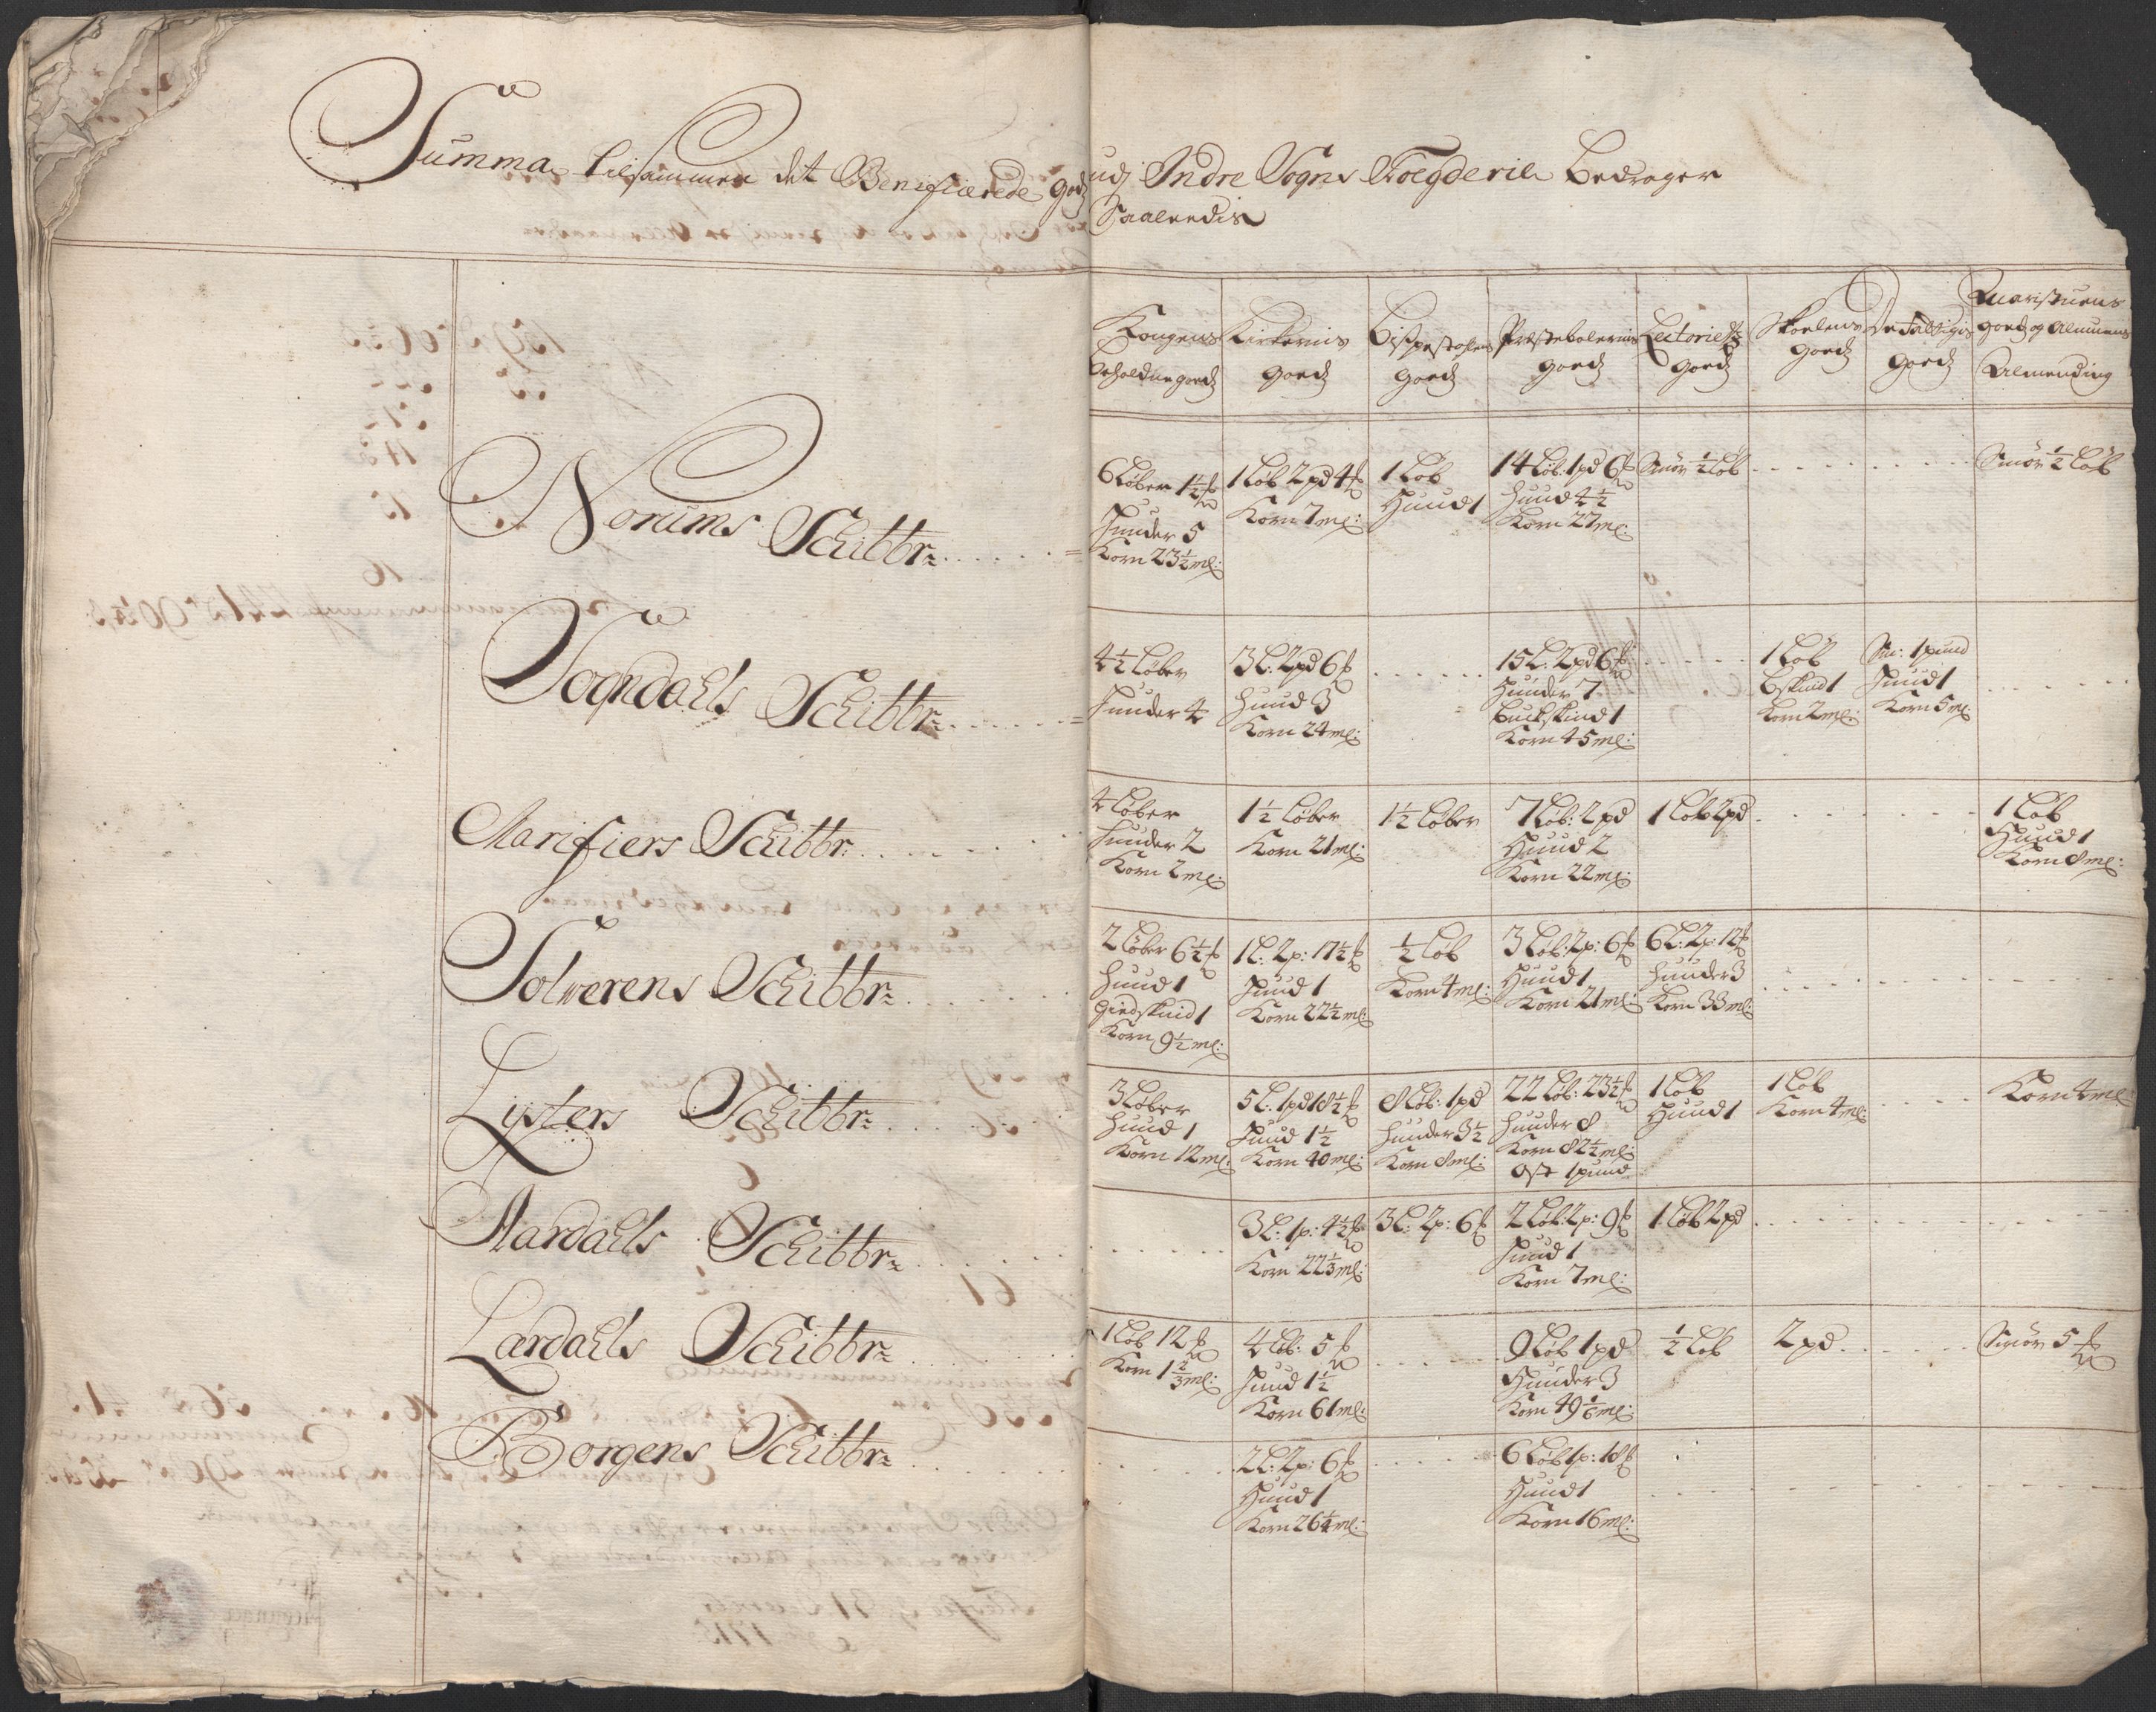 Summa tilsammen det Benificerede godz udj Indre Sogns Foegderie bedrager
Saaleedis
Kongens beholdne goedz
Kirkernis goedz
Bispestolens goedz
Præstebolernis goedz
Lectoriets goedz
Skoelens goedz
De Fattigis goedz
Qvæstuens goedz og Almuens Almending
Norums Schibbr:
6 Løber 1½ ℔
Huuder 5
Korn 23½ ml:
1 Løb 2 pd 4 ℔
Korn 7 ml:
1 Løb
Huud 1
14 Løb: 1 pd 6 ℔
Huud 4½
Korn 27 ml:
Smör ½ Løb
Smör ½ Løb
Sogndahls Schibbr:
4½ Løber
Huuder 4
3 L: 2 pd 6 ℔
Huud 3
Korn 24 ml:
15 L: 2 pd 6 ℔
Huuder 7
Buckskind 1
Korn 45 ml:
1 Løb
Bskind 1
Korn 2 ml:
Sm: 1 pund
Huud 1
Korn 5 ml:
Marifiers Schibbr:
4 Løber
Huuder 2
Korn 2 ml:
1½ Løber
Korn 21 ml:
1½ Løber
7 Løb: 2 pd
Huud 2
Korn 22 ml:
1 Løb 2 pd
1 Løb
Huud 1
Korn 8 ml:
Solverens Schibbr:
2 Løber 6½ ℔
Huud 1
Giedskind 1
Korn 9½ ml:
1 L: 2 p: 17½ ℔
Huud 1
Korn 22½ ml:
½ Løb
Korn 4 ml:
3 Løb: 2 p: 6 ℔
Huud 1
Korn 21 ml:
6 L: 2 p: 12 ℔
Huuder 3
Korn 33 ml:
Lysters Schibbr:
3 Løber
Huud 1
Korn 12 ml:
5 L: 1 pd 18½ ℔
Huud 1½
Korn 40 ml:
8 Løb: 1 pd
Huuder 3½
Korn 8 ml:
22 Løb: 23½ ℔
Huuder 8
Korn 82½ ml:
Ost 1 pund
1 Løb
Huud 1
1 Løb
Korn 4 ml:
Korn 4 ml:
Aardahls Schibbr:
3 L: 1 p: 4½ ℔
Korn 22⅓ ml:
3 L: 2 p: 6 ℔
2 Løb: 2 p: 9 ℔
Huud 1
Korn 7 ml:
1 Løb 2 pd
Lardahls Schibbr:
1 Løb 12 ℔
Korn 1⅔ ml:
4 Løb: 5 ℔
Huud 1½
Korn 61 ml:
9 Løb 1 pd
Huuder 3
Korn 49⅙ ml:
½ Løb
2 pd
Smör 5 ℔
Borgens Schibbr:
2 L: 2 p: 6 ℔
Huud 1
Korn 26¼ ml:
6 Løb 1 p: 18 ℔
Huud 1
Korn 16 ml: